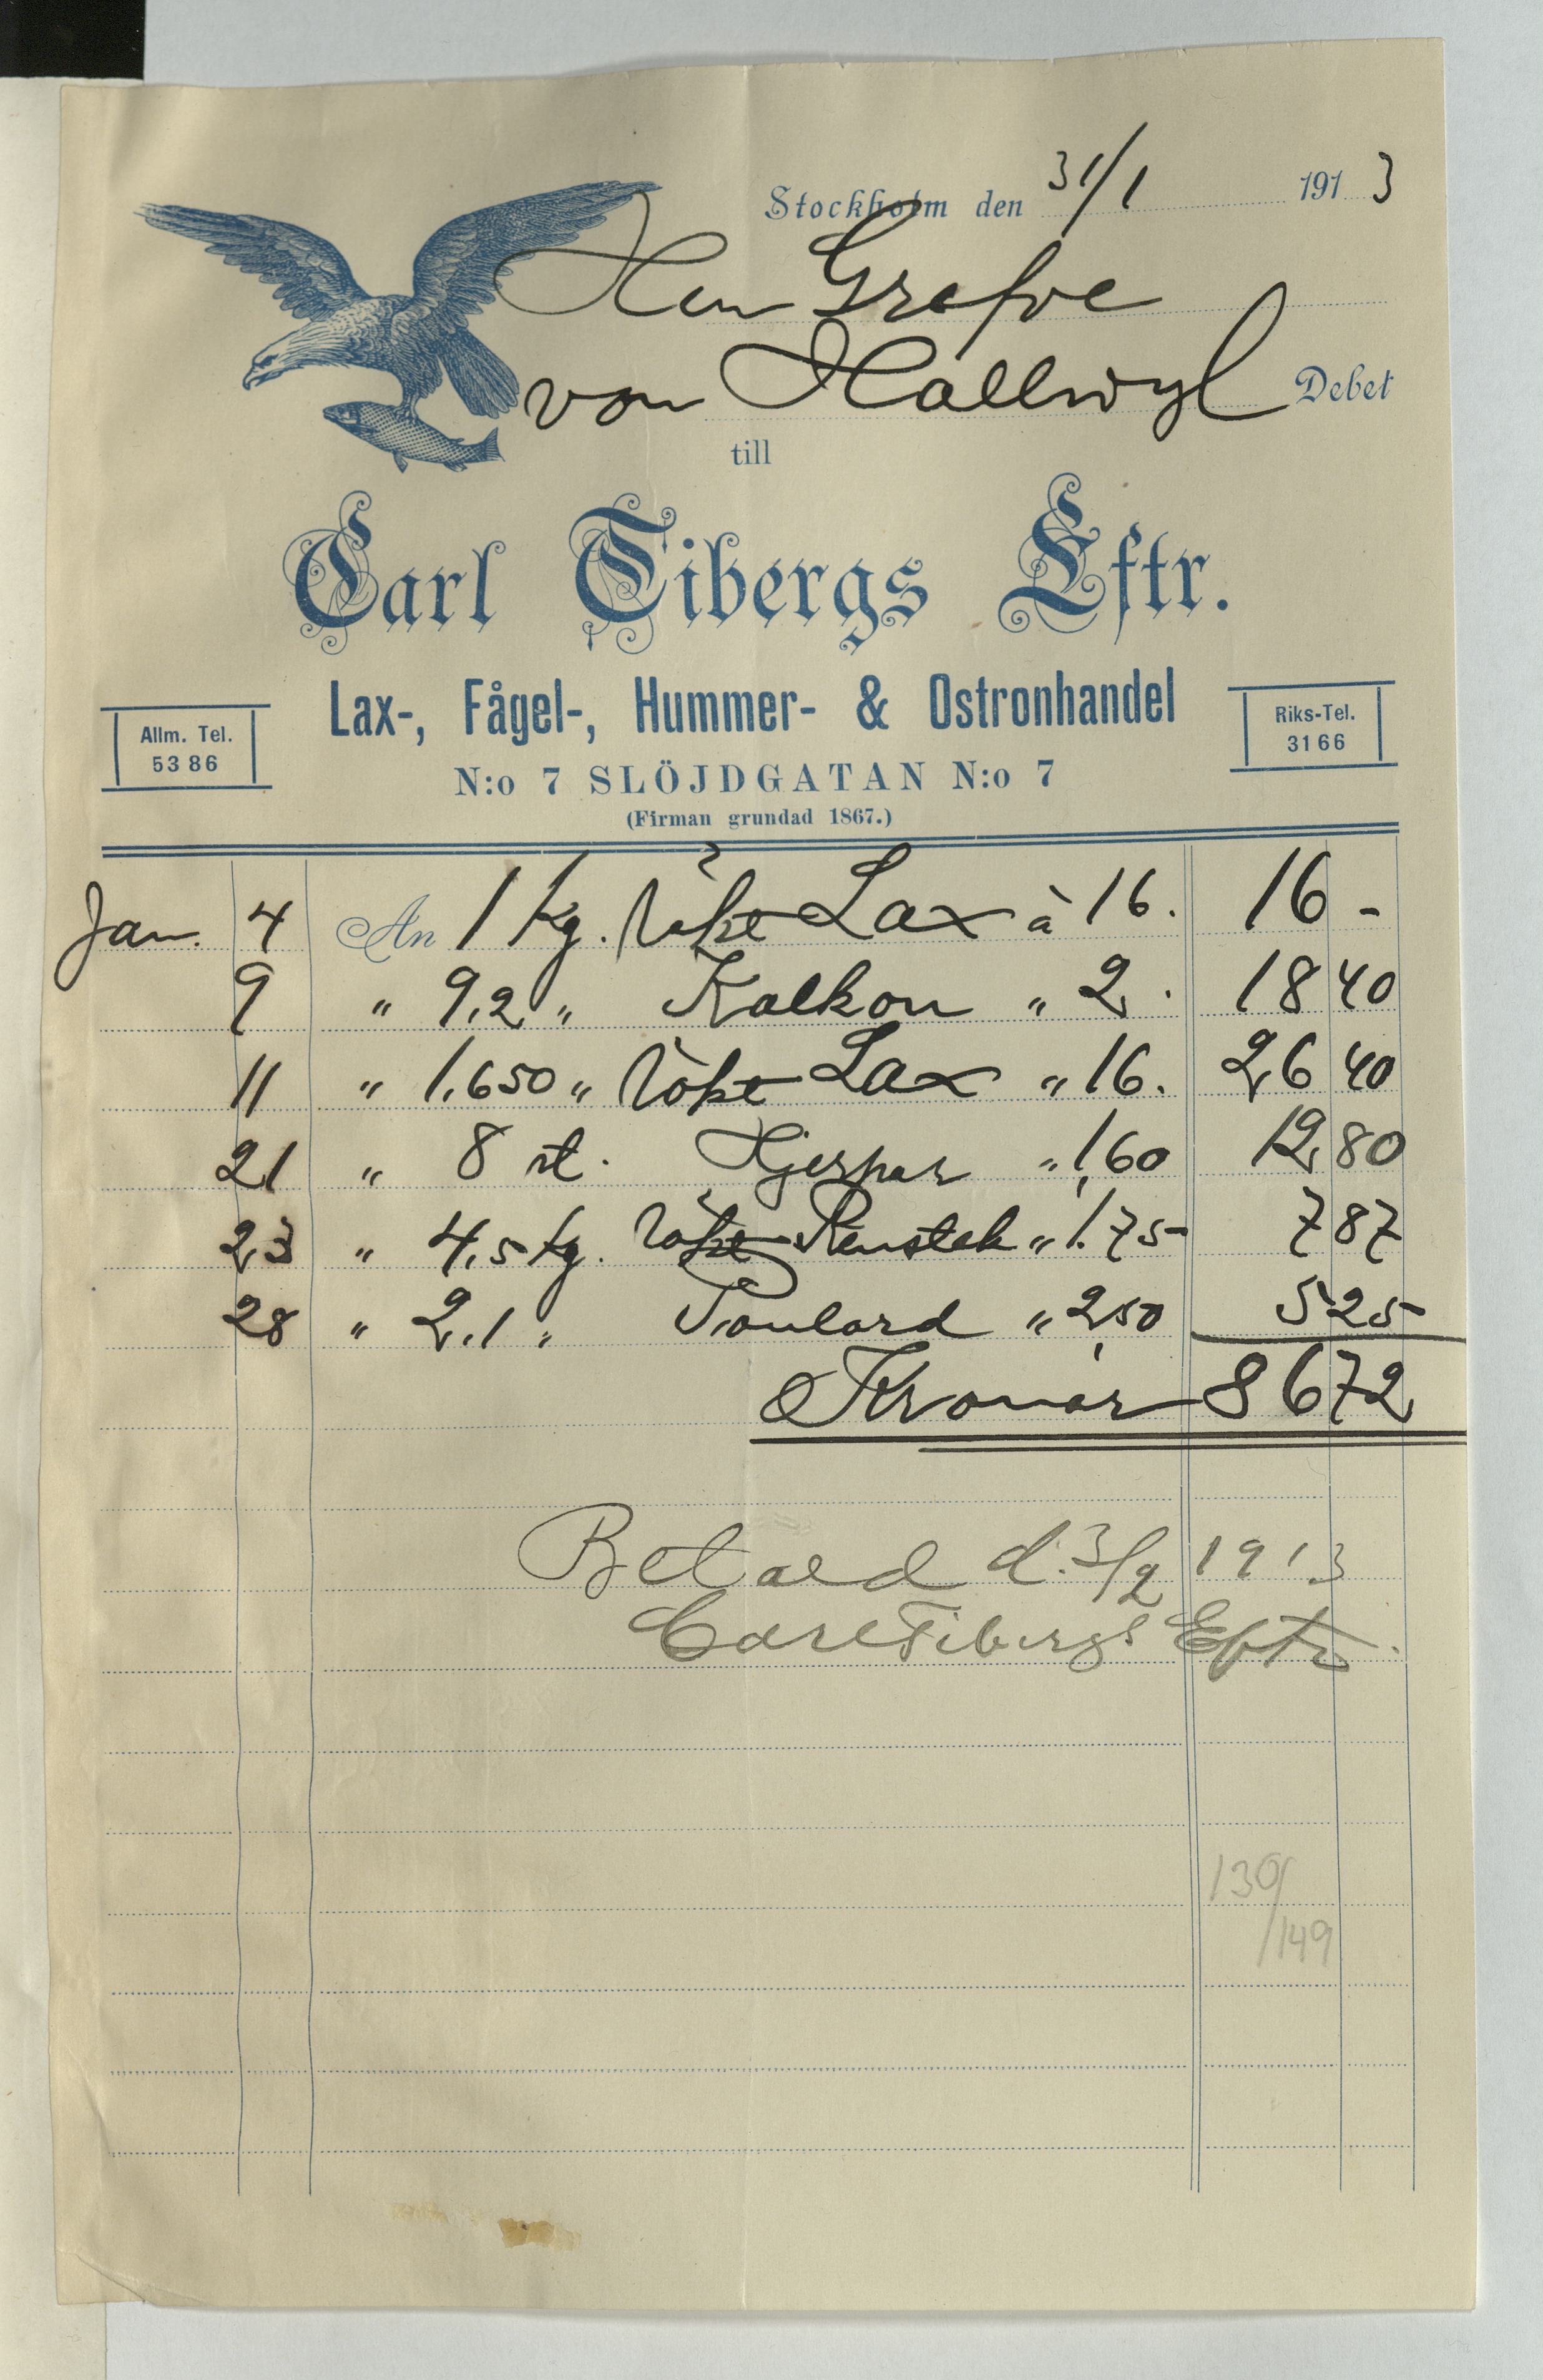 Stockholm den 31/1 1913
Herr Grefve
von Hallwyl Debet
till
Carl Tibergs Eftr.
Lax-, Fågel-, Hummer- & Ostronhandel
Allm. Tel.
5386
Riks-Tel.
3166
N:o 7 SLÖJDGATAN N:o 7
(Firman grundad 1867.)
Jan. 4 An 1 kg. Rökt Lax à 16. 16 -
9 " 9,2 " Kalkon " 2. 18 40
11 " 1,650 " Rökt Lax " 16. 26 40
21 " 8 st. Hjerpar " 1,60 12 80
23 " 4,5 kg. Rökt Renstek " 1.75 7 87
28 " 2.1 " Poulard " 2,50 5 25
Kronor 86 72
Betald d. 3/2 1913
Carl Tibergs Eftr.
130/
/149